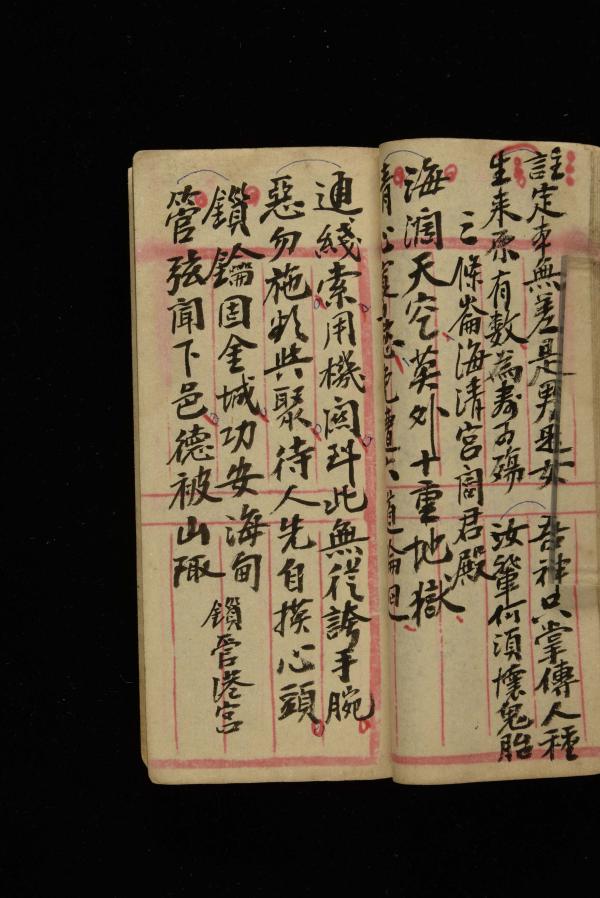 註定本無差是男是女 吾神只掌傳人種
生来原有數為壽为殤 汝輩何須懷鬼胎
三條崙海清宮閻君殿
海濶天空莫外十重地獄
清 六道輪迴
通綫索用機関到此無從誇手腕
惡勿施欲與聚待人先自摸心頭
鎖鑰固金城功安海甸
管弦聞下邑德被山陬
鎖管港宮